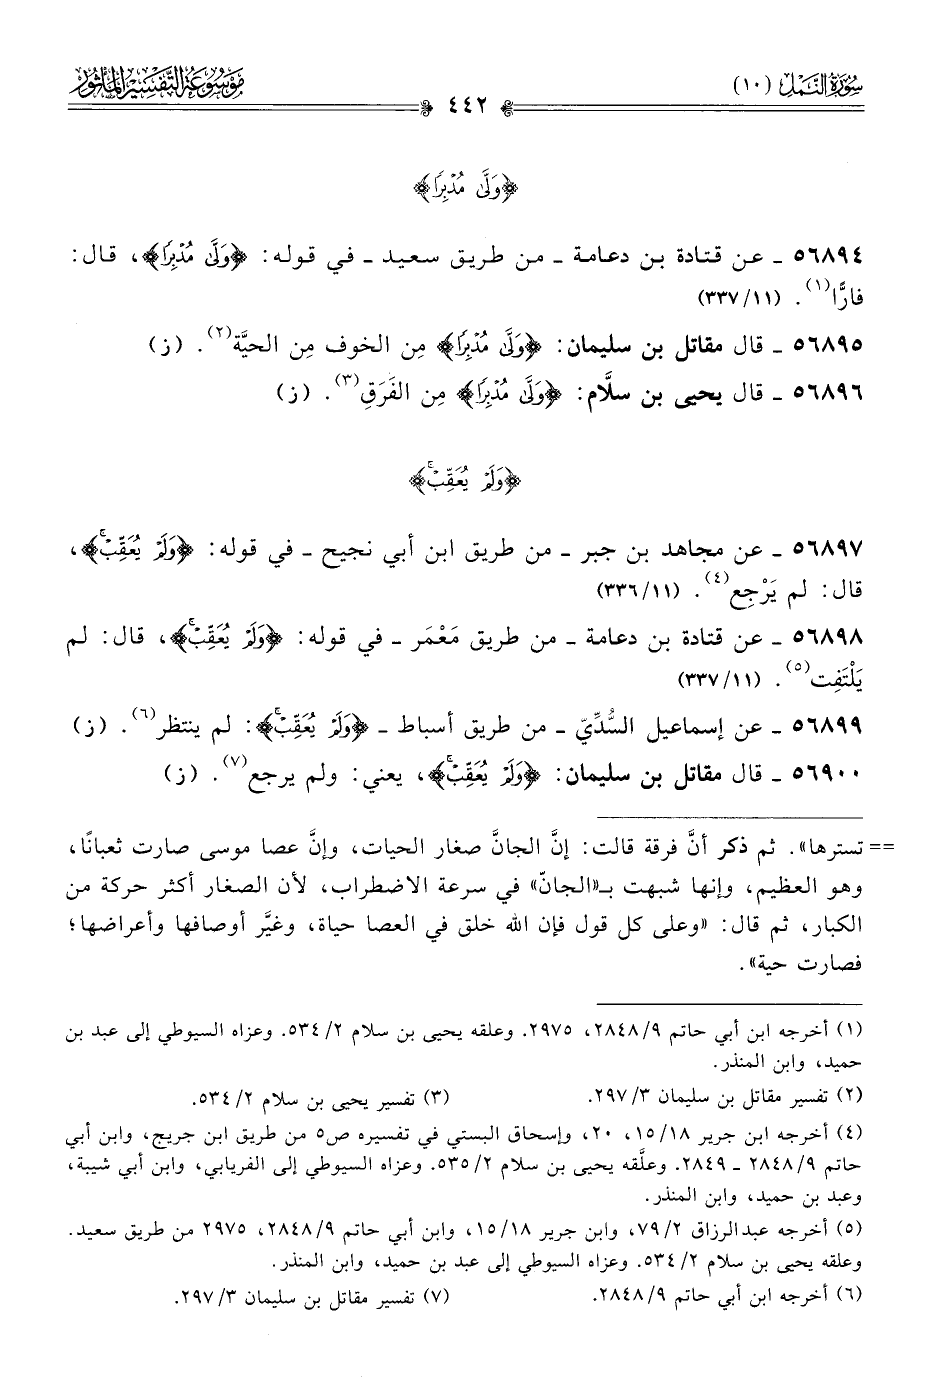 سُورَةُ النَّمْلِ (١٠)
٤٤٢
مَوْسُوعَةُ التَّفْسِيرِ المَأْثُورِ
﴿وَلَّىٰ مُدْبِرًا﴾
٥٦٨٩٤ ـ عن قتادة بن دعامة ـ من طريق سعيد ـ في قوله: ﴿وَلَّىٰ مُدْبِرًا﴾، قال:
فارًّا(١). (٣٣٧/١١)
٥٦٨٩٥ ـ قال مقاتل بن سليمان: ﴿وَلَّىٰ مُدْبِرًا﴾ مِن الخوف مِن الحيَّة(٢). (ز)
٥٦٨٩٦ ـ قال يحيى بن سلَّام: ﴿وَلَّىٰ مُدْبِرًا﴾ مِن الفَرَقِ(٣). (ز)
﴿وَلَمْ يُعَقِّبْۚ﴾
٥٦٨٩٧ ـ عن مجاهد بن جبر ـ من طريق ابن أبي نجيح ـ في قوله: ﴿وَلَمْ يُعَقِّبْۚ﴾،
قال: لم يَرْجِع(٤). (٣٣٦/١١)
٥٦٨٩٨ ـ عن قتادة بن دعامة ـ من طريق مَعْمَر ـ في قوله: ﴿وَلَمْ يُعَقِّبْۚ﴾، قال: لم
يَلْتَفِت(٥). (٣٣٧/١١)
٥٦٨٩٩ ـ عن إسماعيل السُّدِّيّ ـ من طريق أسباط ـ ﴿وَلَمْ يُعَقِّبْۚ﴾: لم ينتظر(٦). (ز)
٥٦٩٠٠ ـ قال مقاتل بن سليمان: ﴿وَلَمْ يُعَقِّبْۚ﴾، يعني: ولم يرجع(٧). (ز)
== تسترها». ثم ذكر أنَّ فرقة قالت: إنَّ الجانَّ صغار الحيات، وإنَّ عصا موسى صارت ثعبانًا،
وهو العظيم، وإنها شبهت بـ«الجانّ» في سرعة الاضطراب، لأن الصغار أكثر حركة من
الكبار، ثم قال: «وعلى كل قول فإن الله خلق في العصا حياة، وغيَّر أوصافها وأعراضها؛
فصارت حية».
(١) أخرجه ابن أبي حاتم ٢٨٤٨/٩، ٢٩٧٥. وعلقه يحيى بن سلام ٥٣٤/٢. وعزاه السيوطي إلى عبد بن
حميد، وابن المنذر.
(٢) تفسير مقاتل بن سليمان ٢٩٧/٣. (٣) تفسير يحيى بن سلام ٥٣٤/٢.
(٤) أخرجه ابن جرير ١٥/١٨، ٢٠، وإسحاق البستي في تفسيره ص٥ من طريق ابن جريج، وابن أبي
حاتم ٢٨٤٨/٩ ـ ٢٨٤٩. وعلَّقه يحيى بن سلام ٥٣٥/٢. وعزاه السيوطي إلى الفريابي، وابن أبي شيبة،
وعبد بن حميد، وابن المنذر.
(٥) أخرجه عبدالرزاق ٧٩/٢، وابن جرير ١٥/١٨، وابن أبي حاتم ٢٨٤٨/٩، ٢٩٧٥ من طريق سعيد.
وعلقه يحيى بن سلام ٥٣٤/٢. وعزاه السيوطي إلى عبد بن حميد، وابن المنذر.
(٦) أخرجه ابن أبي حاتم ٢٨٤٨/٩. (٧) تفسير مقاتل بن سليمان ٢٩٧/٣.